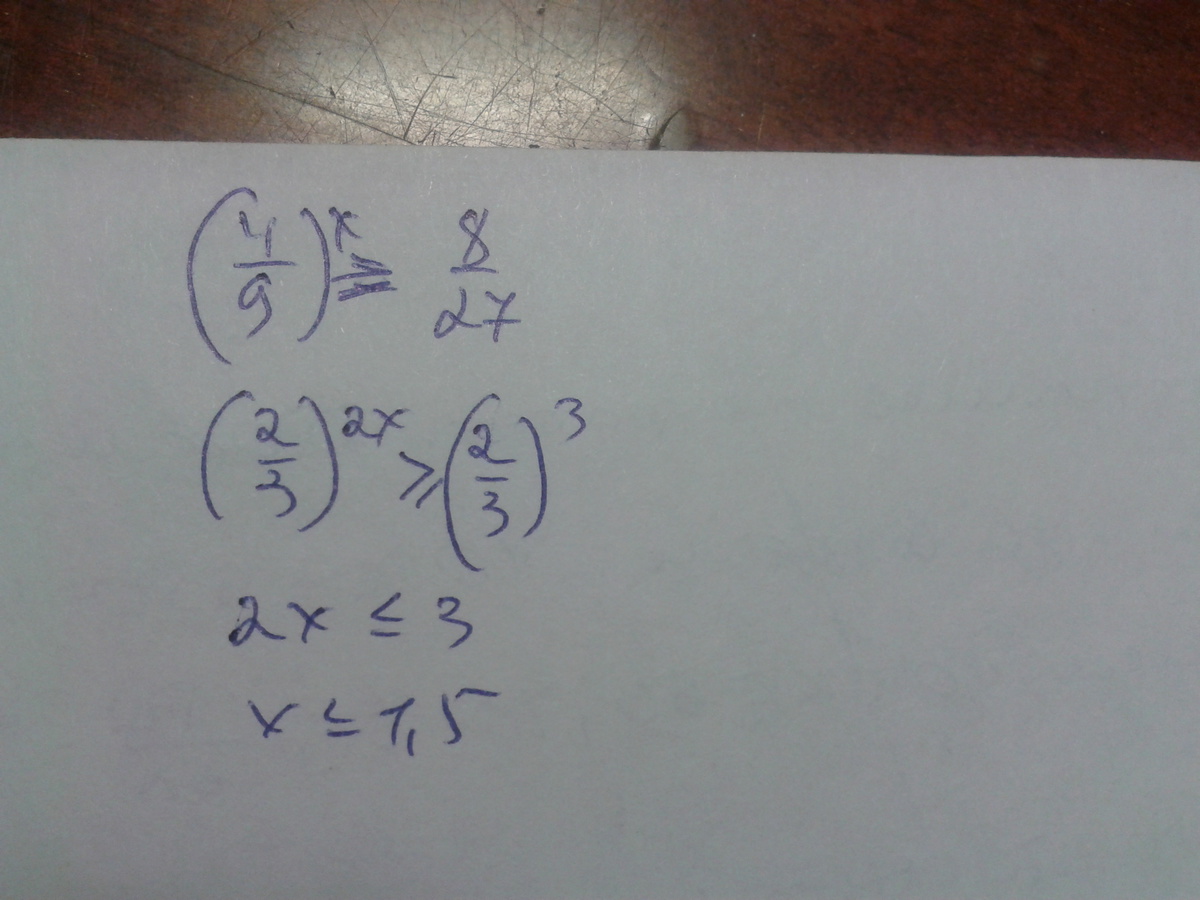 (4/9)^x ≥ 8/27
(2/3)^2x ≥ (2/3)^3
2x ≤ 3
x ≤ 1,5